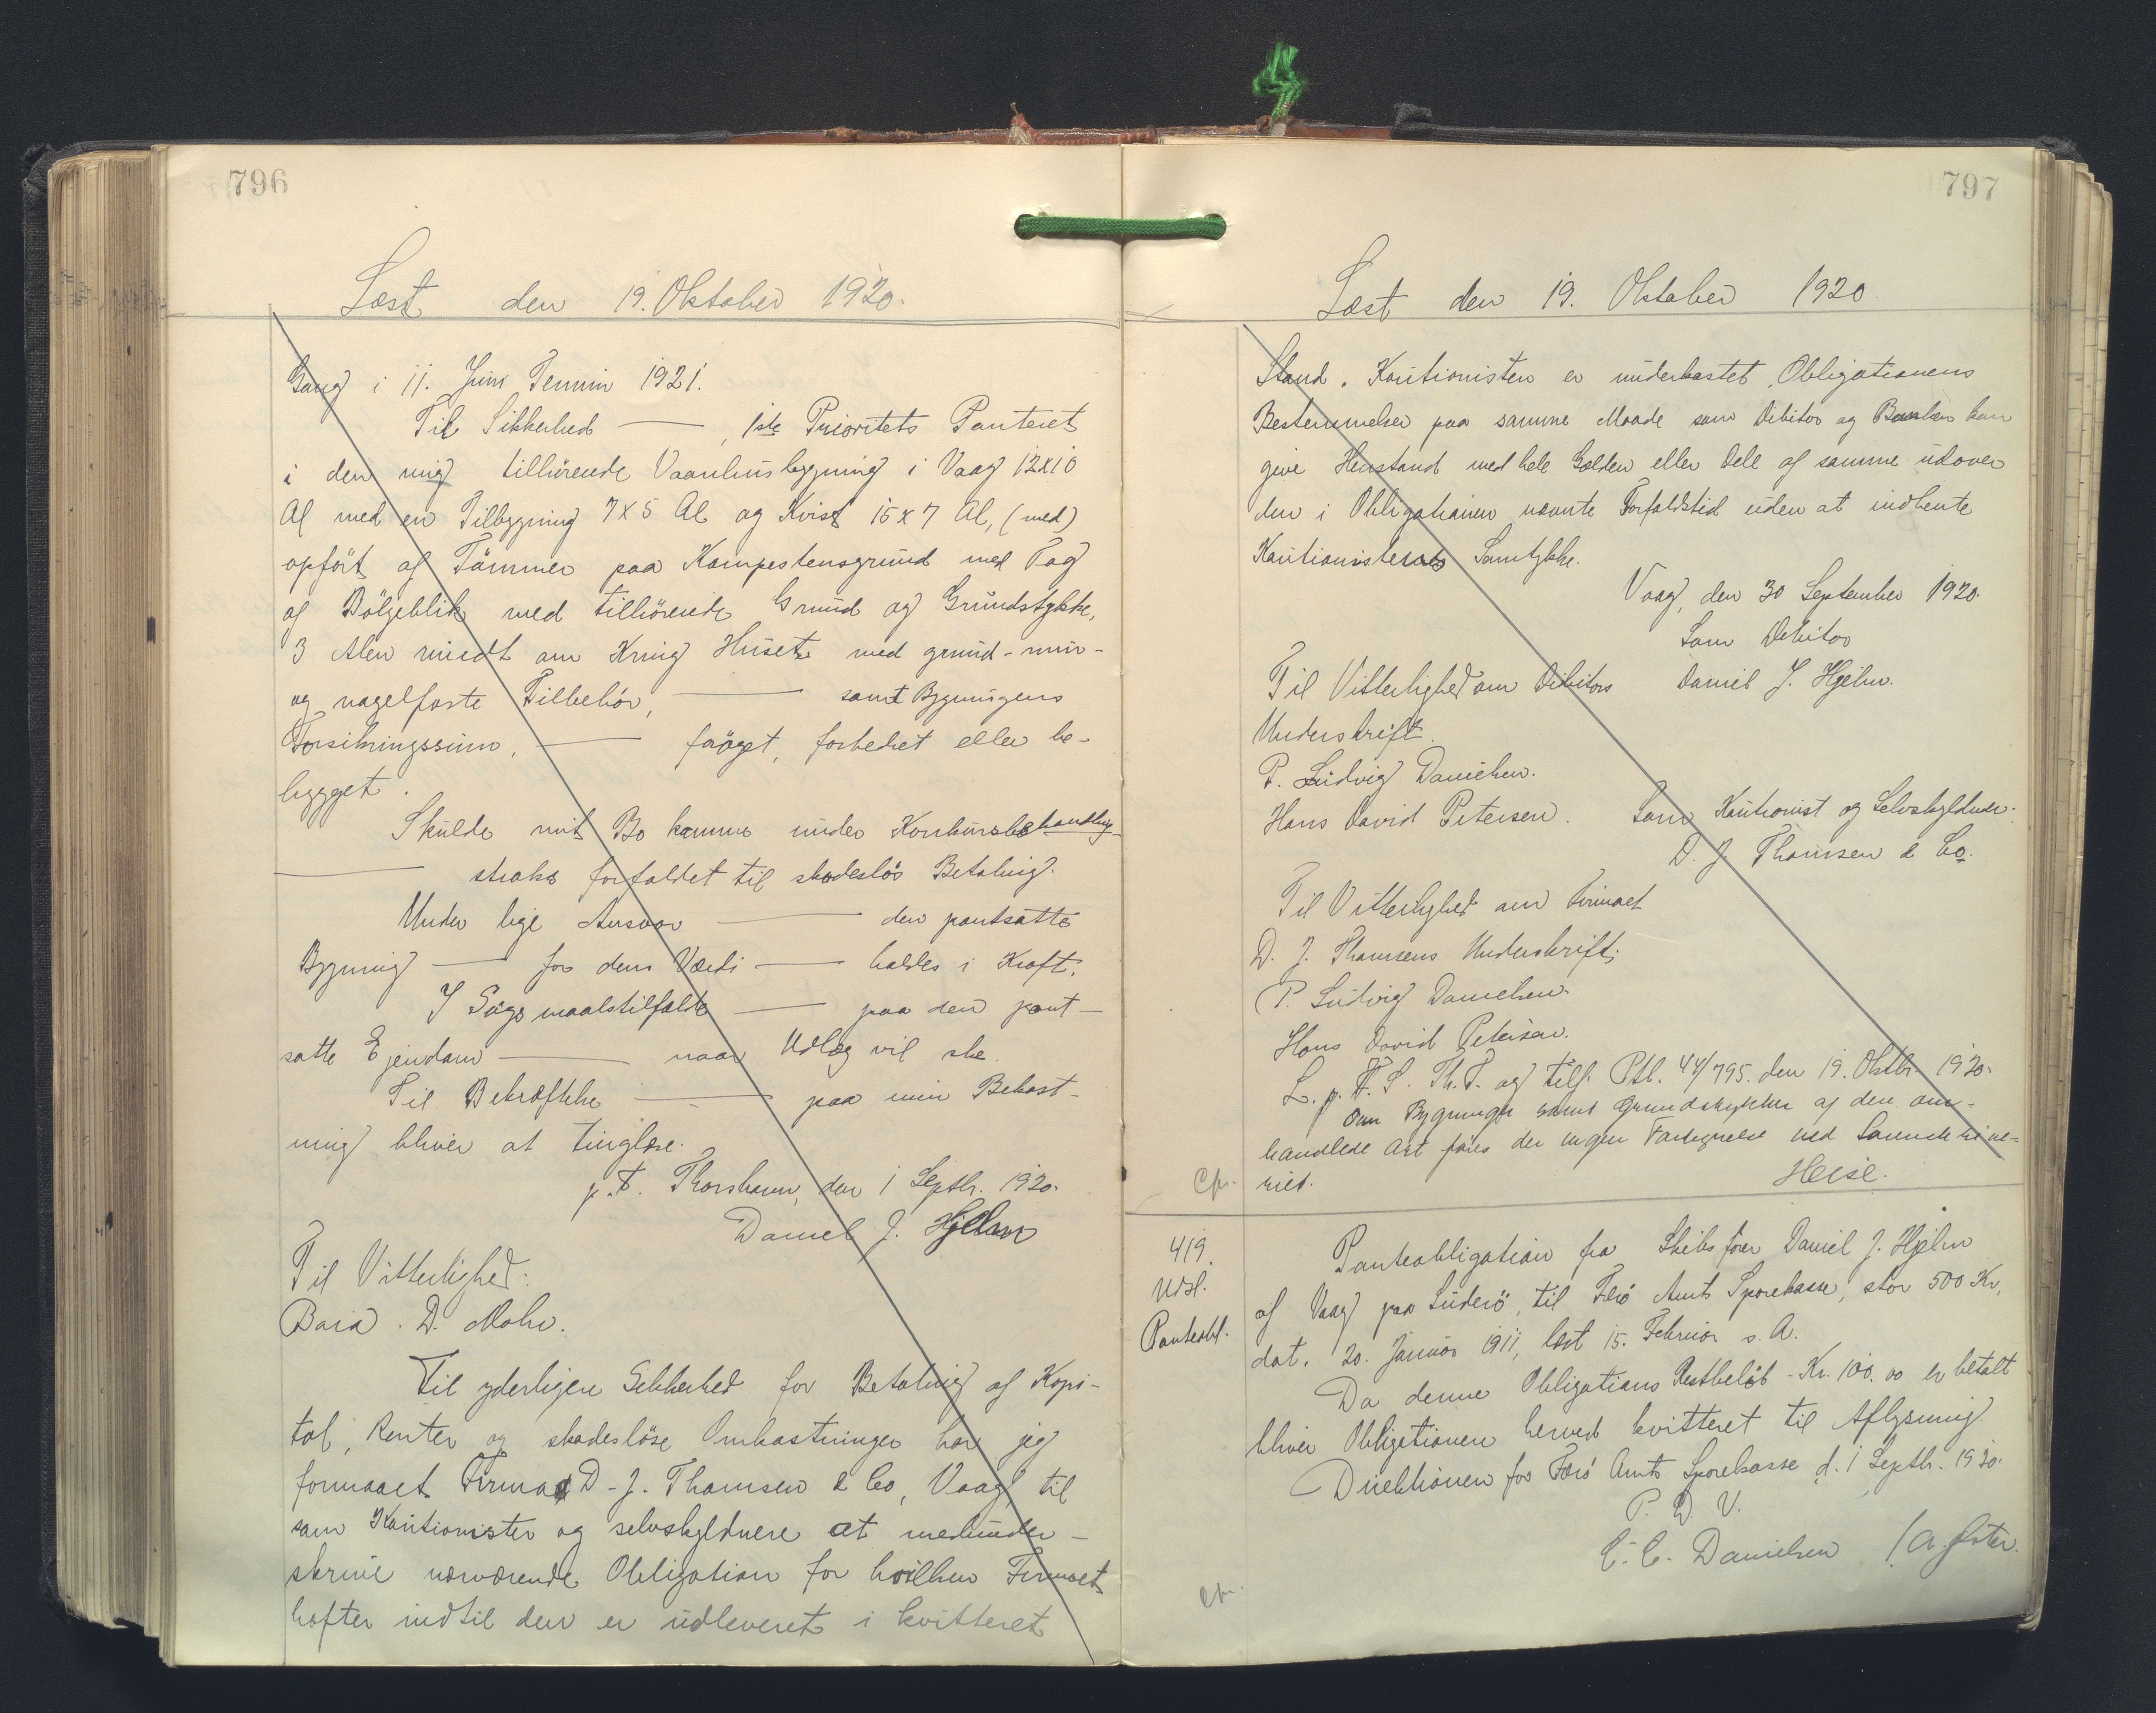 796
Læst den 19. Oktober 1920.
Gang i 11. Juni Termin 1921.
Til Sikkerhed — , 1ste Prioritets Panteret
i den mig tilhörende Vaanhusbygning i Vaag 12x10
Al med en Tilbygning 7x5 Al og Kvist 15x7 Al, (med)
opfört af Tömmer paa Kampestensgrund med Tag
af Bölgeblik med tilhörende Grund og Grundstykke,
3 Alen rundt om Kring Huset med grund-mur-
og nagelfaste Tilbehör, — samt Bygningens
Forsikringssum, — foröget, forbedret eller be-
bygget.
Skulde mit Bo komme under Konkursbehandling
— straks forfaldet til skadeslös Betaling.
Under lige Ansvar — den pantsatte
Bygning — for dens Værdi — holdes i Kraft.
I Sögsmaalstilfælde — paa den pant-
satte Ejendom — naar Udlæg vil ske.
Til Bekræftelse — paa min Bekost-
ning bliver at tinglæse.
p.t. Thorshavn, den 1 Septbr. 1920.
Daniel J. Hjelm
Til Vitterlighed:
D. Mohr.
Til yderligere Sikkerhed for Betaling af Kapi-
tal, Renter og skadeslöse Omkostninger har jeg
formaaet Firmaet D. J. Thomsen & Co, Vaag til
som Kautionister og selvskyldnere at medunder-
skrive nærværende Obligation for hvilken Firmaet
hæfter indtil den er udleveret i kvitteret
797
Læst den 19. Oktober 1920.
Stand. Kautionisten er underkastet Obligationens
Bestemmelser paa samme Maade som Debitor og Banken kan
give Henstand med hele Gælden eller Dele af samme udover
den i Obligationen nævnte Forfaldstid uden at indhente
Kautionisternes Samtykke.
Vaag, den 30 September 1920.
Som Debitor
Til Vitterlighed om Debitors Daniel J. Hjelm.
Underskrift.
P. Ludvig Danielsen.
Hans David Petersen. Som Kautionist og Selvskyldnere:
D. J. Thomsen & Co.
Til Vitterlighed om Firmaet
D. J. Thomsens Underskrift:
P. Ludvig Danielsen.
Hans David Petersen.
L. p. F. S. Th. T. og tilf. Ptb. 44/795. den 19. Oktbr. 1920.
Om Bygninger samt Grundstykker af den om-
handlede Art føres der ingen Fortegnelse ved Sorenskrive-
riet.
Cfr.
Heise.
419.
Udsl.
Panteobl.
Panteobligation fra Skibsfører Daniel J. Hjelm
af Vaag paa Suderö, til Færö Amts Sparekasse, stor 500 Kr,
dat. 20. Januar 1911, læst 15. Februar s. A.
Da denne Obligations Restbelöb - Kr. 100.00 er betalt
bliver Obligationen herved kvitteret til Aflysning.
Direktionen for Færö Amts Sparekasse d. 1 Septbr. 1920.
P. D. V.
C. C. Danielsen /
Cfr.